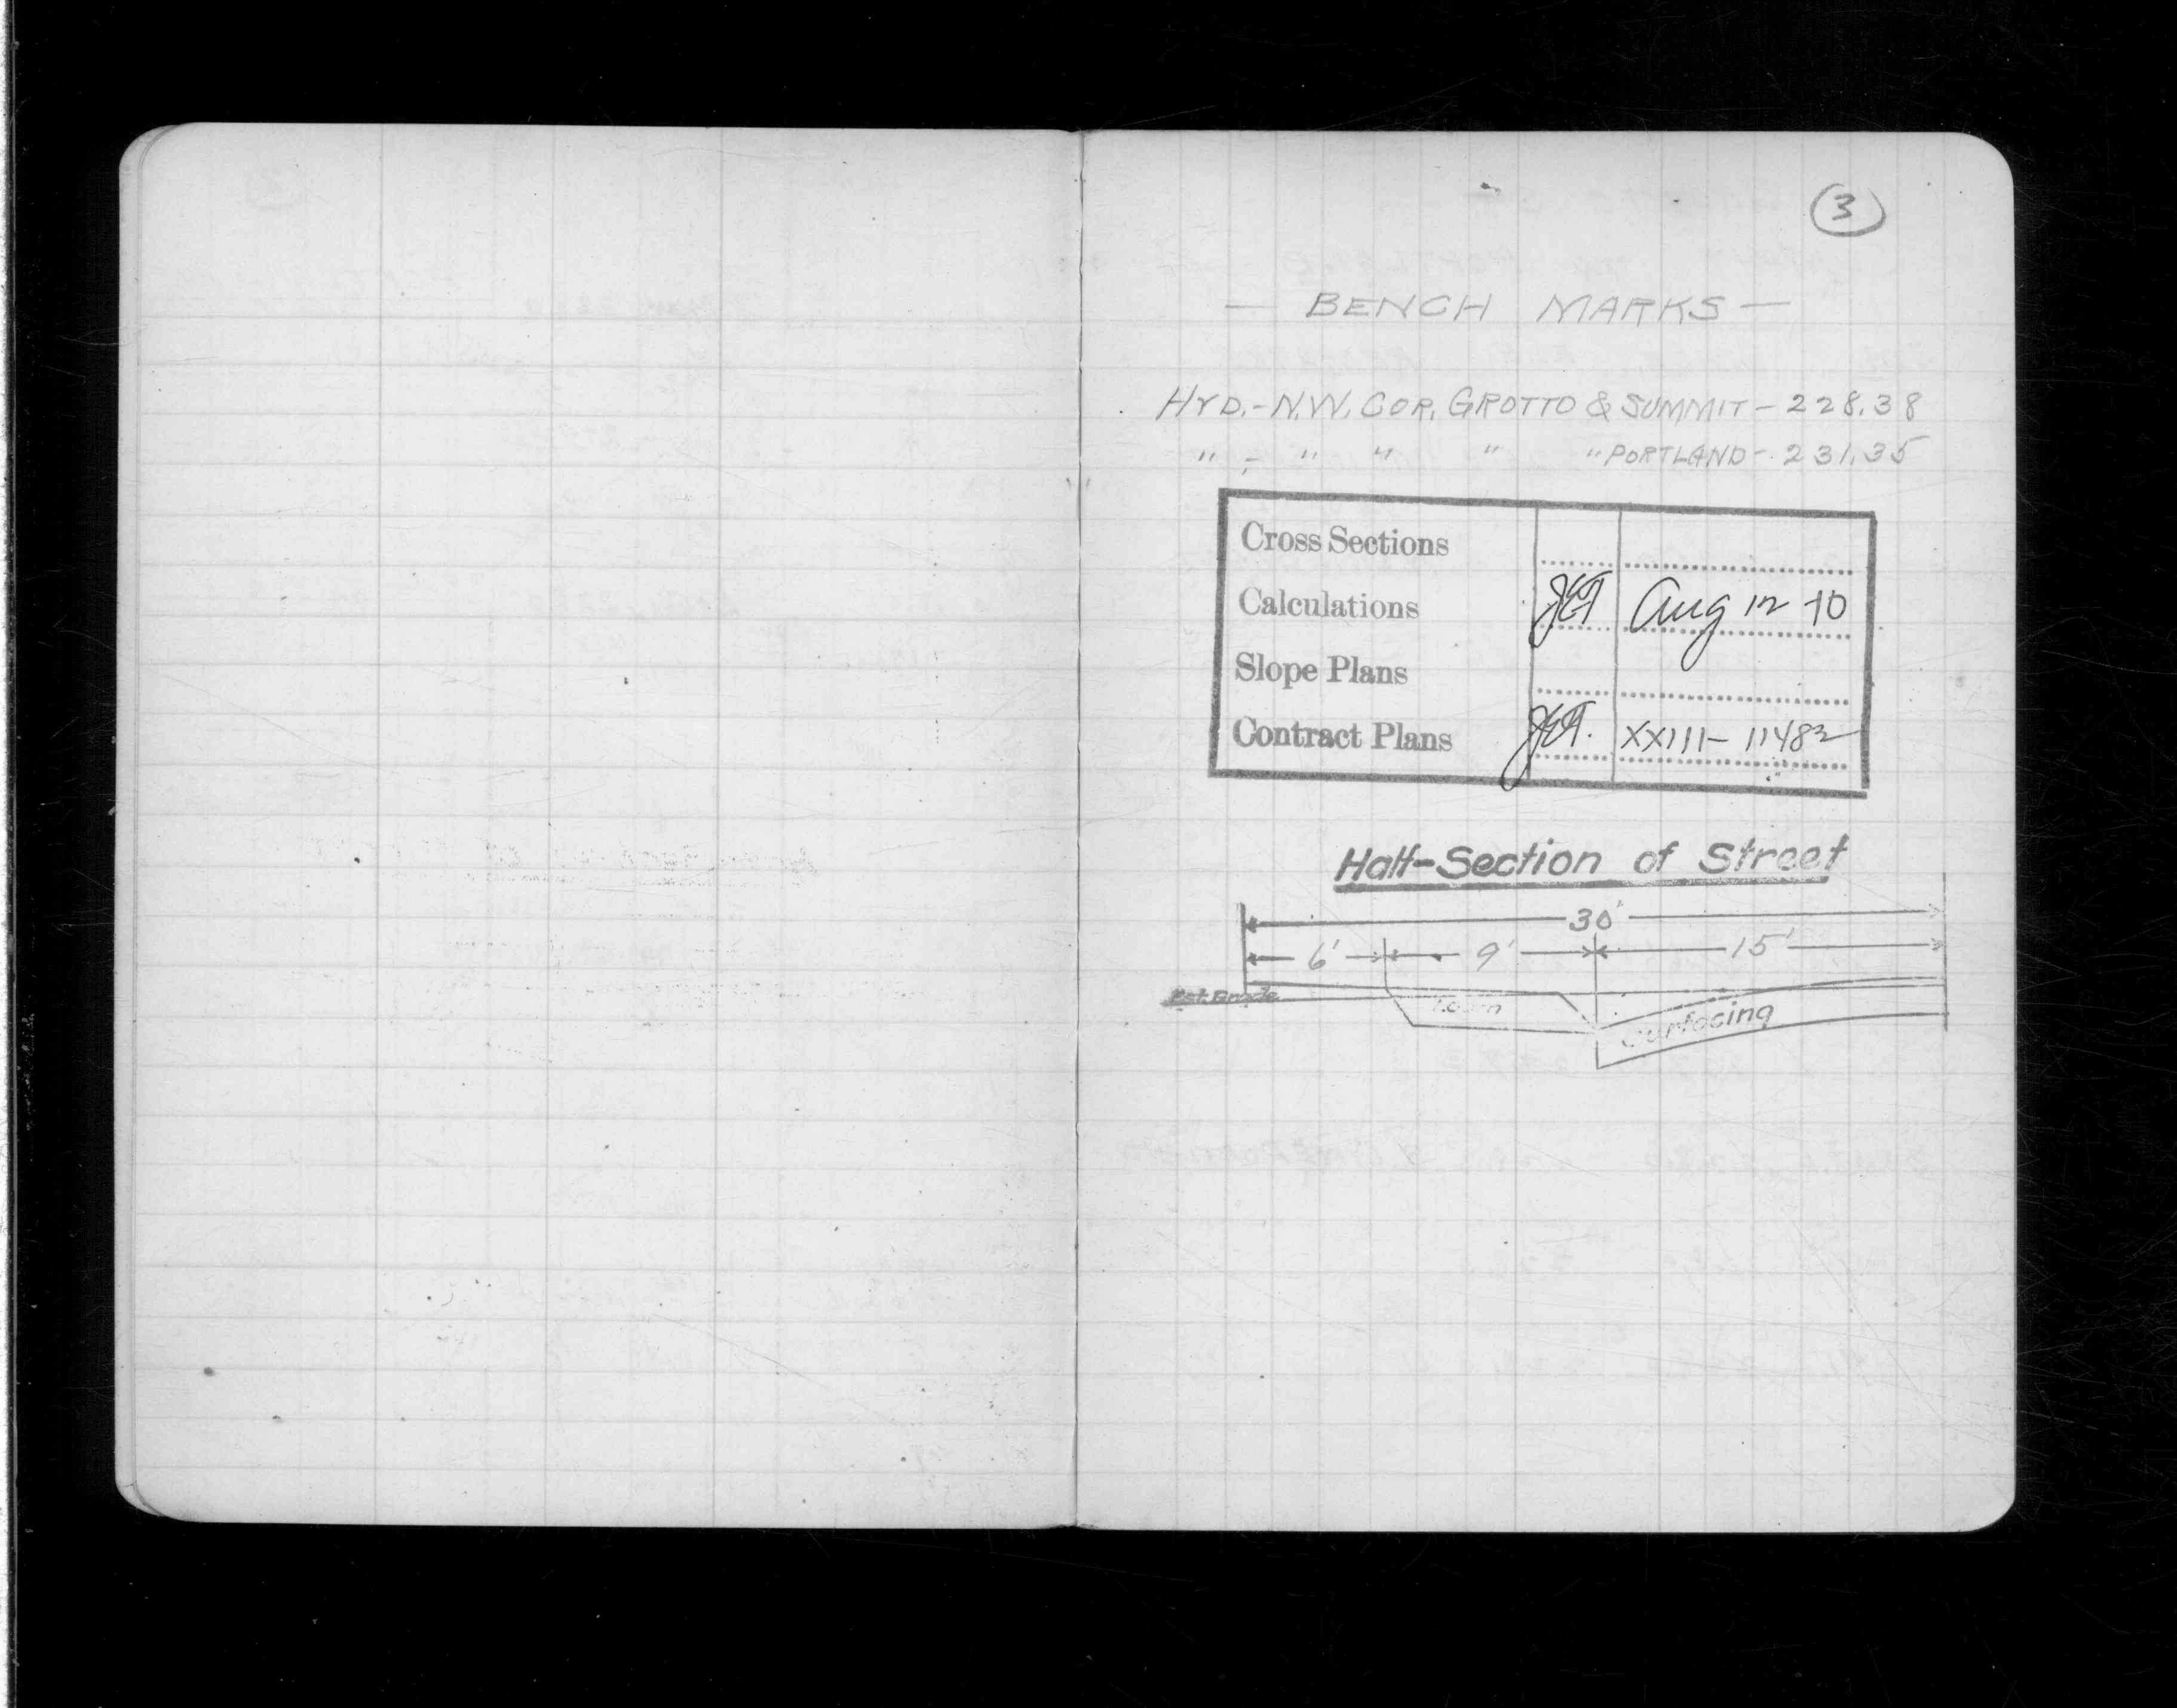 3
— BENCH MARKS —
HYD.- N.W. COR. GROTTO & SUMMIT - 228.38
" - " " " " PORTLAND - 231.35
Cross Sections
Calculations JET Aug 12 -10
Slope Plans
Contract Plans JET. XXIII - 11482
Half-Section of Street
30'
6' 9' 15'
Est. Grade
Loam
Surfacing